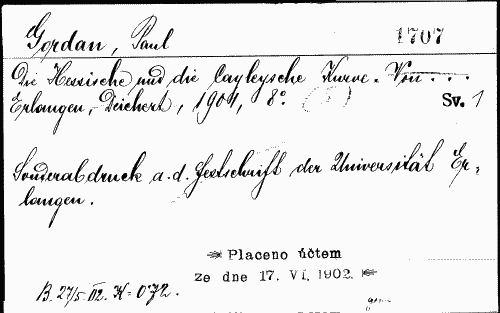 Gordan, Paul 1707
Die Hessische und die Cayleysche Kurve. Von . . .
Erlangen, Deichert, 1901, 8°. Sv. 1
Sonderabdruck a. d. Festschrift der Universität Er-
langen.
Placeno účtem
ze dne 17. VI. 1902.
B. 27/5 02. K=0.72.